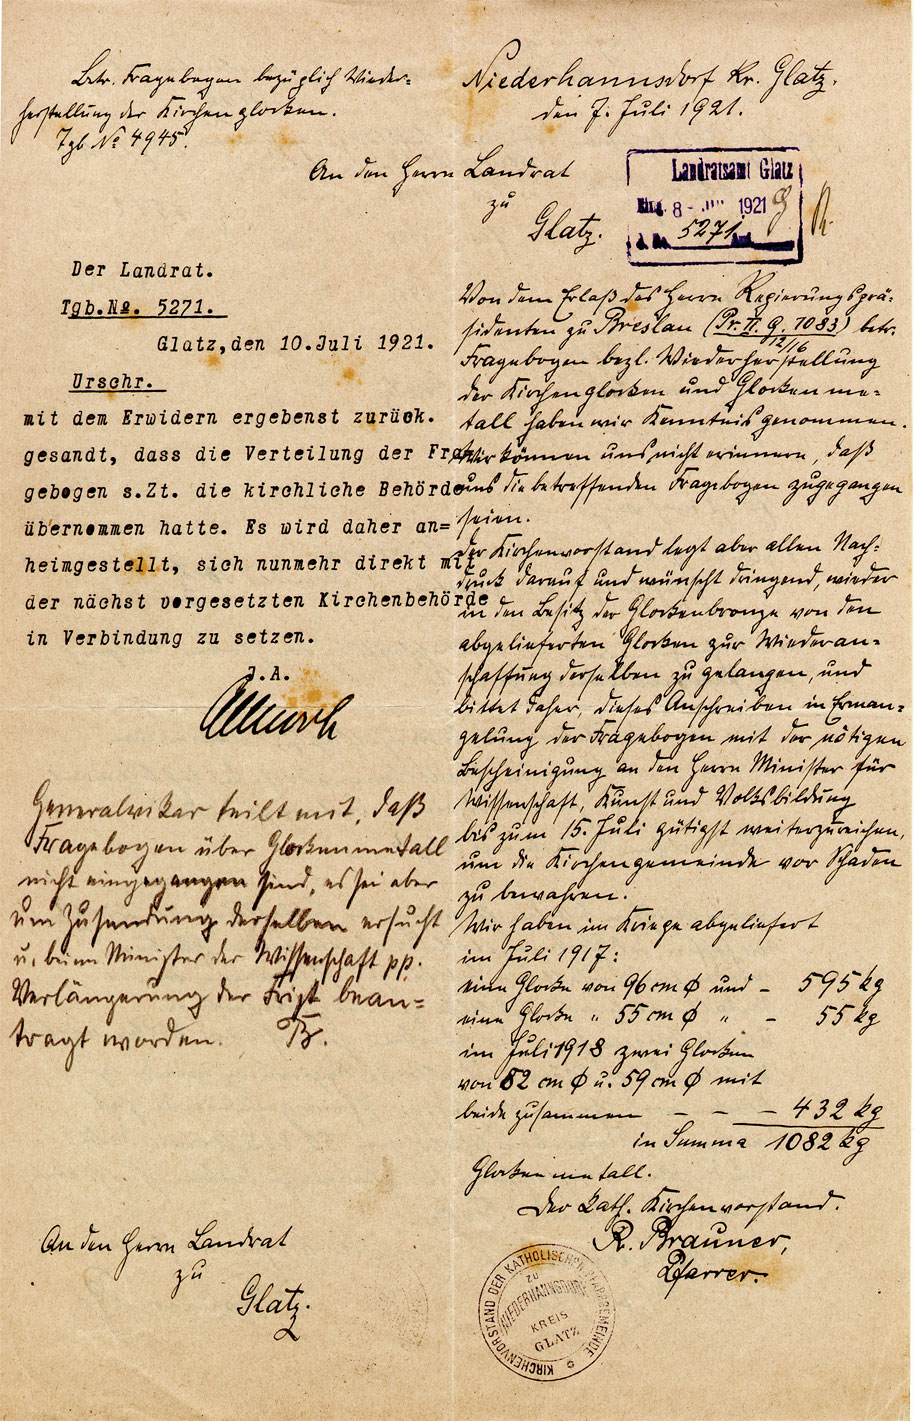 Betr. Fragebogen bezüglich Wieder=
herstellung der Kirchenglocken.
Tgb. No 4945.
Niederhannsdorf Kr. Glatz.
den 7. Juli 1921.
An den Herrn Landrat
zu
Glatz.
Landratsamt Glatz
Eing. 8 - 1921
5271
Von dem Erlaß des Herrn Regierungsprä-
sidenten zu Breslau (Pr. II. G. 7083) betr.
12/16
Fragebogen bezl. Wiederherstellung
der Kirchenglocken und Glockenme-
tall haben wir Kenntnis genommen.
Wir können uns nicht erinnern, daß
uns die betreffenden Fragebogen zugegangen
seien.
Der Kirchenvorstand legt aber allen Nach-
druck darauf und wünscht dringend, wieder
in den Besitz der Glockenbronze von den
abgelieferten Glocken zur Wiederan-
schaffung derselben zu gelangen, und
bittet daher, dieses Anschreiben in Erman-
gelung der Fragebogen mit der nötigen
Bescheinigung an den Herrn Minister für
Wissenschaft, Kunst und Volksbildung
bis zum 15. Juli gütigst weiterzureichen,
um die Kirchengemeinde vor Schaden
zu bewahren.
Wir haben im Kriege abgeliefert
im Juli 1917:
eine Glocke von 96 cm ϕ und – 595 kg
eine Glocke " 55 cm ϕ " – 55 kg
im Juli 1918 zwei Glocken
von 82 cm ϕ u. 59 cm ϕ mit
beide zusammen – – – 432 kg
in Summa 1082 kg
Glockenmetall.
Der Kath. Kirchenvorstand.
R. Brauner,
Pfarrer.
KIRCHENVORSTAND DER KATHOLISCHEN PFARRGEMEINDE
ZU
NIEDERHANNSDORF
KREIS
GLATZ
Der Landrat.
Tgb.No. 5271.
Glatz,den 10.Juli 1921.
Urschr.
mit dem Erwidern ergebenst zurück.
gesandt, dass die Verteilung der Fra
gebogen s.Zt. die kirchliche Behörde
übernommen hatte. Es wird daher an=
heimgestellt, sich nunmehr direkt mit
der nächst vorgesetzten Kirchenbehörde
in Verbindung zu setzen.
J.A.
Generalvikar teilt mit, daß
Fragebogen über Glockenmetall
nicht eingegangen sind, es sei aber
um Zusendung derselben ersucht
u. beim Minister der Wissenschaft pp.
Verlängerung der Frist bean=
tragt worden. B.
An den Herrn Landrat
zu
Glatz.